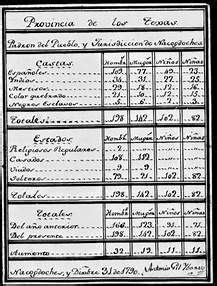 Provincia de los Texas
Padron del Pueblo, y Jurisdiccion de Nacogdoches
Castas Hombr. Muger. Niños Niñas
Españoles 109. 77. 49. 23.
Yndios 34. 31. 27. 25.
Mestizos 19. 18. 16. 12.
Color quebrado 21. 12. 5. 19.
Negros Esclavos 15. 6. 3.
Totales 198 142. 102. 82.
Estados Hombr. Muger. Niños Niñas
Religiosos Regulares 2.
Casados 108. 112.
Viudos 9. 9.
Solteros 79. 21. 102. 82.
Totales 198. 142. 102. 82.
Totales Hombr. Muger. Niños Niñas
Del año anterior 166. 123. 91. 71.
Del presente 198. 142. 102. 82.
Aumento 32. 19. 11. 11.
Nacogdoches, y Dizbre 31 de 1790. Antonio